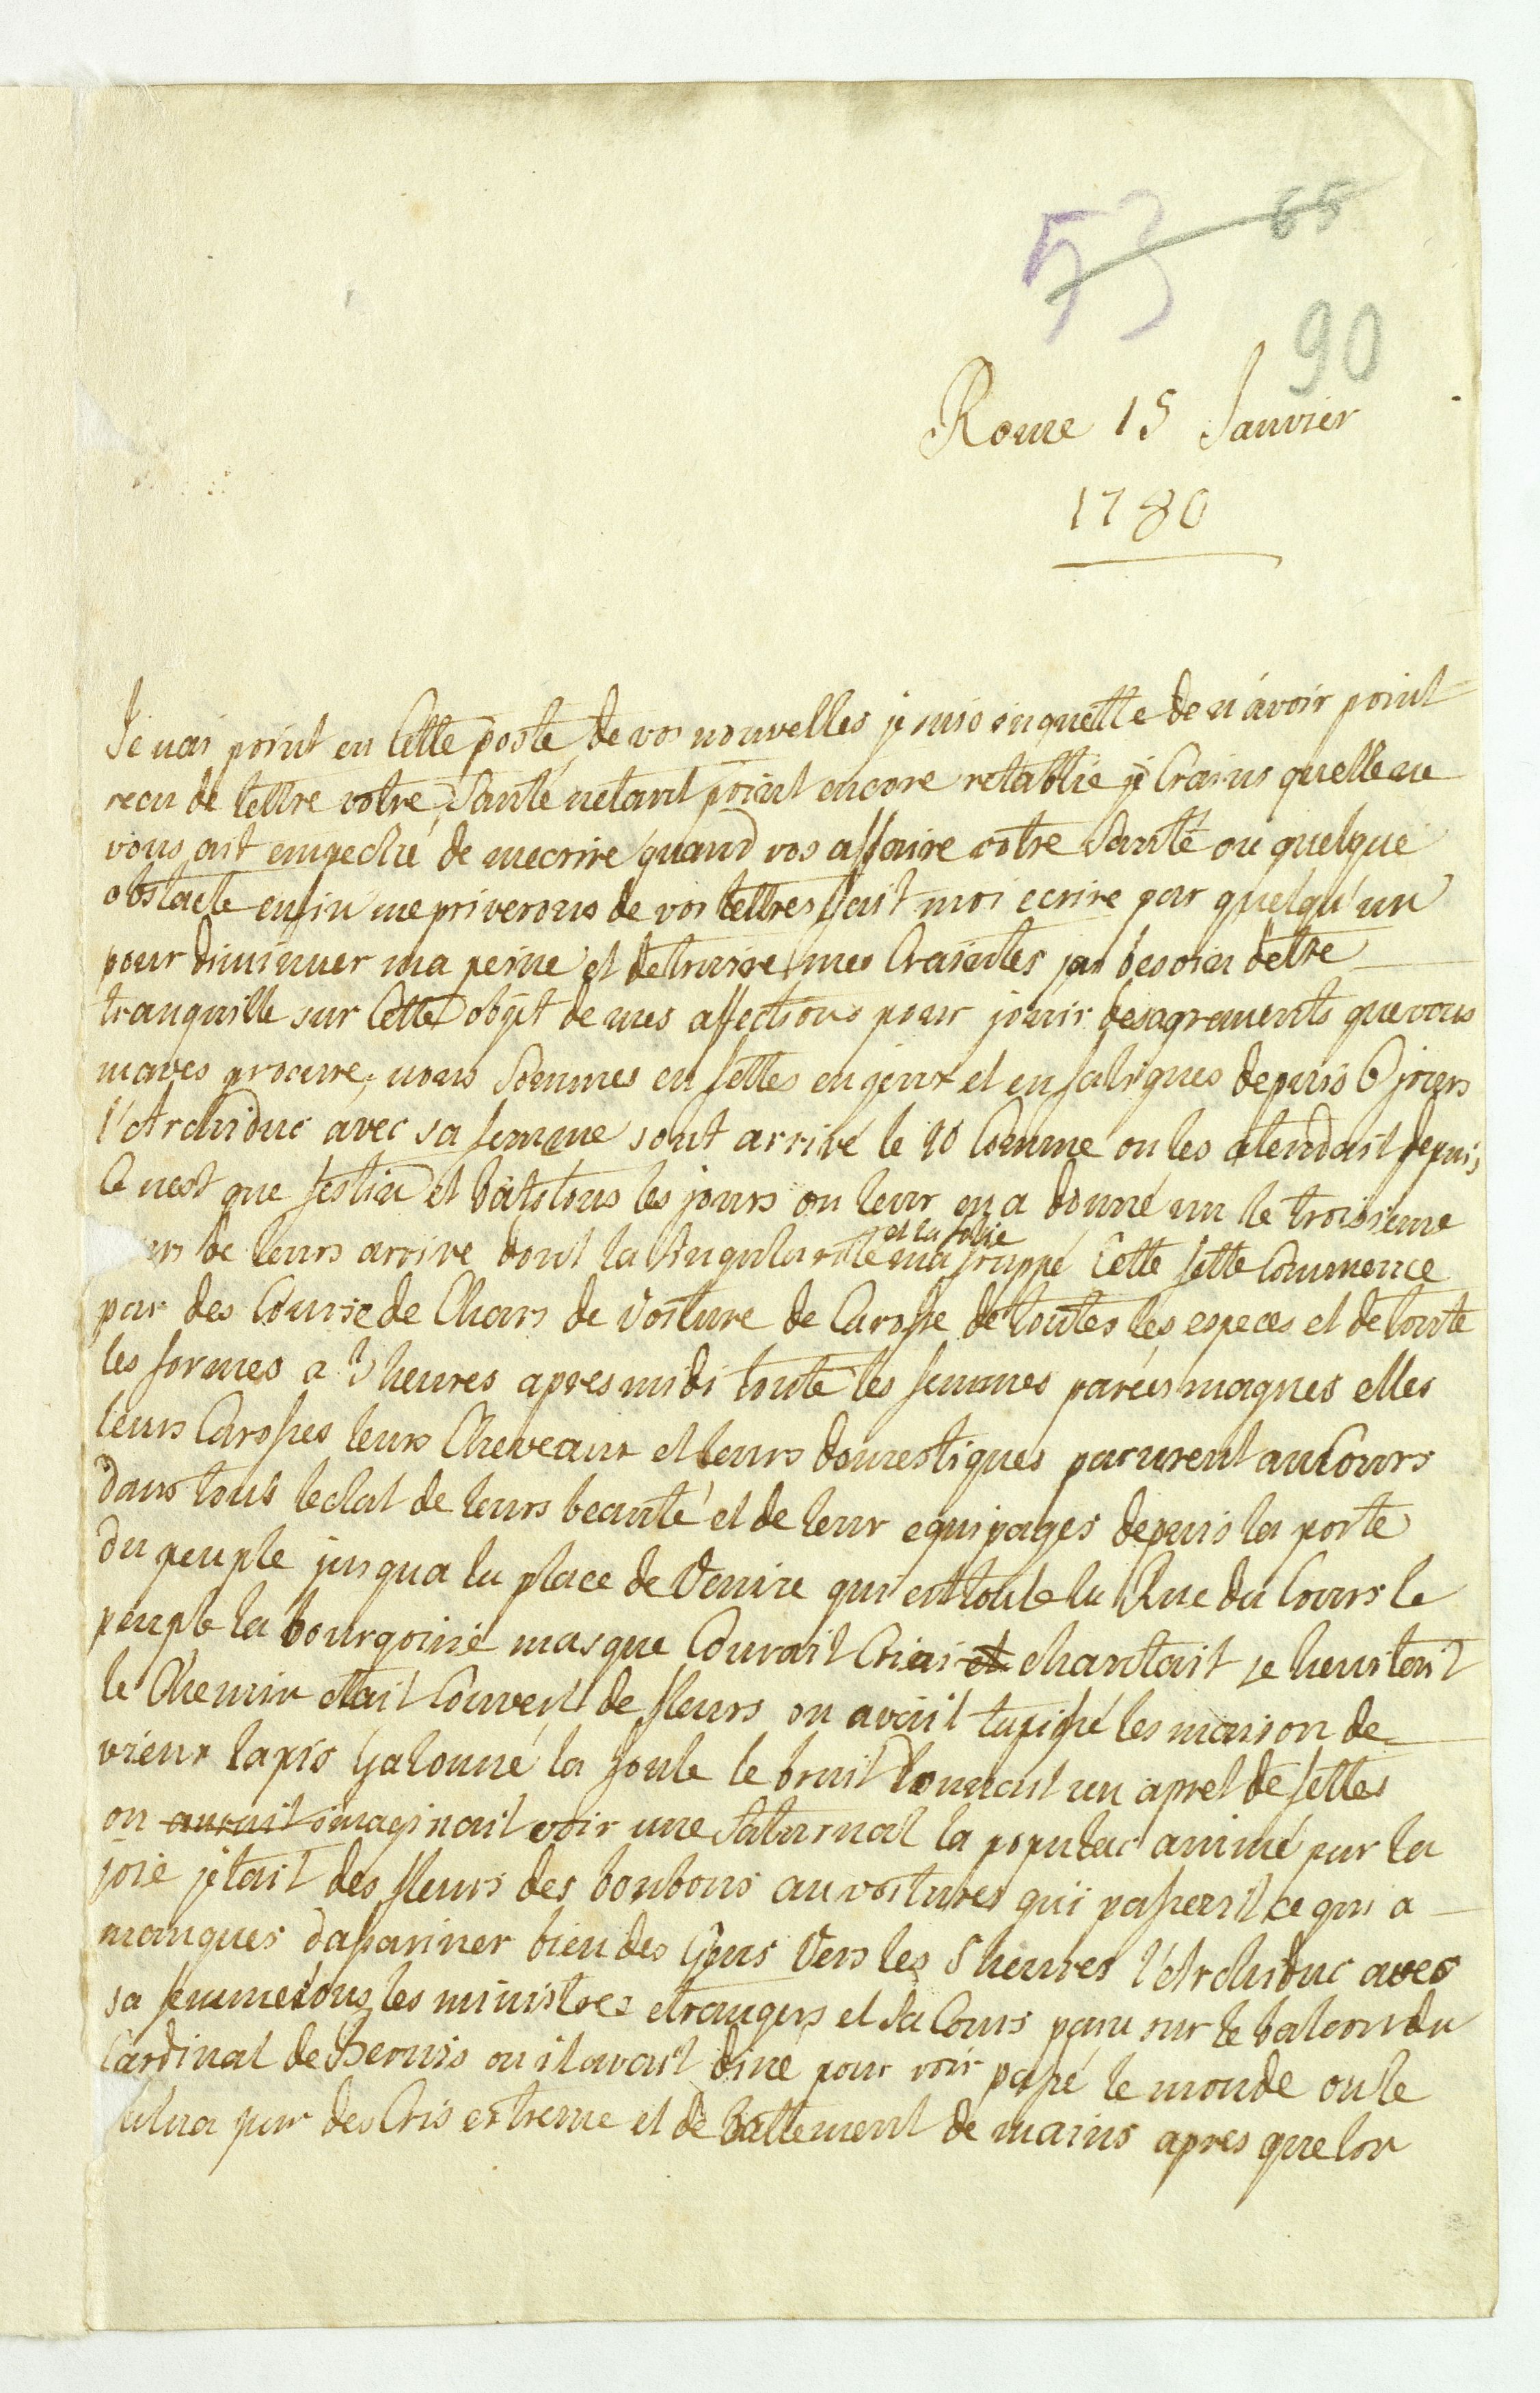 53 65
90
Rome 15 Janvier
1780
Je nai point eu Cette poste de vos nouvelles je suis inquette de n'avoir point
recu de lettre votre Santé netant point encore retablie je Crains quelle ne
vous ait empeché de mecrire quand vos affaire votre Santé ou quelque
obstacle enfin me priverons de vos lettres fait moi ecrire par quelqu'un
pour diminuer ma peine et detruire mes Craientes jai besoin detre
tranquille sur Cette objet de mes affections pour jouir des agrements que vous
maves procure, nous Sommes en fettes en jeux et en fatigues depuis 6 jours
l'Archiduc avec sa femme sont arrivé le 10 Comme on les atendait depuis
Ce nest que festin et bals tous les jours on leur en a donné un le troisieme
urs de leurs arrive dont la singularite et la folie ma frappé Cette fette Commence
par des Course de Chars de Voiture de Carosse de toutes les especes et de toute
les formes a 3 heures apres midi toute les femmes parées magnes elles
leurs Carosses leurs Cheveaux et leurs domestiques parurent au Cours
dans tous leclat de leurs beauté et de leur equipages depuis la porte
du peuple jusqua la place de Venise qui est toute la Rue du Cours le
peuple la bourgoisie masque Couroit Criai et chantait se heurtoit
le Chemin etait Couvert de fleurs on avait tapissé les maison de
vieux tapis Galonné la foule le bruit donnait un apret de fettes
on aurait imaginait voir une Saturnal la populac animé par la
joie jetait des fleurs des bonbons au voitures qui passerit ce qui a
manques dassasiner bien des Gens Vers les 5 heures l'Archiduc avec
sa femme tous les ministres etrangers et Sa Cours paru sur le balcon du
Cardinal de Bernis ou il avait diné pour voir passé le monde on le
salua par des Cris extreme et de battement de mains apres que lon